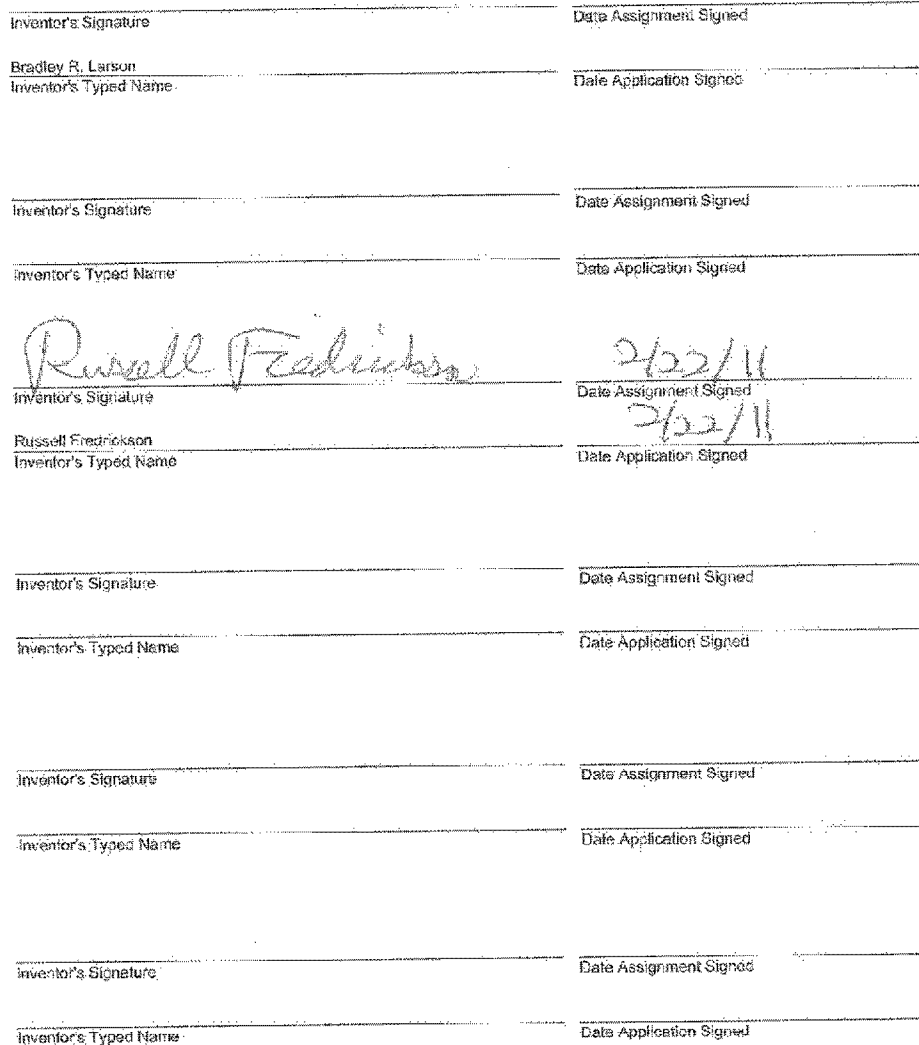 Inventor's Signature Date Assignment Signed
Bradley R. Larson
Inventor's Typed Name Date Application Signed
Inventor's Signature Date Assignment Signed
Inventor's Typed Name Date Application Signed
Russell Fredrickson 2/22/11
Inventor's Signature Date Assignment Signed
2/22/11
Russell Fredrickson
Inventor's Typed Name Date Application Signed
Inventor's Signature Date Assignment Signed
Inventor's Typed Name Date Application Signed
Inventor's Signature Date Assignment Signed
Inventor's Typed Name Date Application Signed
Inventor's Signature Date Assignment Signed
Inventor's Typed Name Date Application Signed